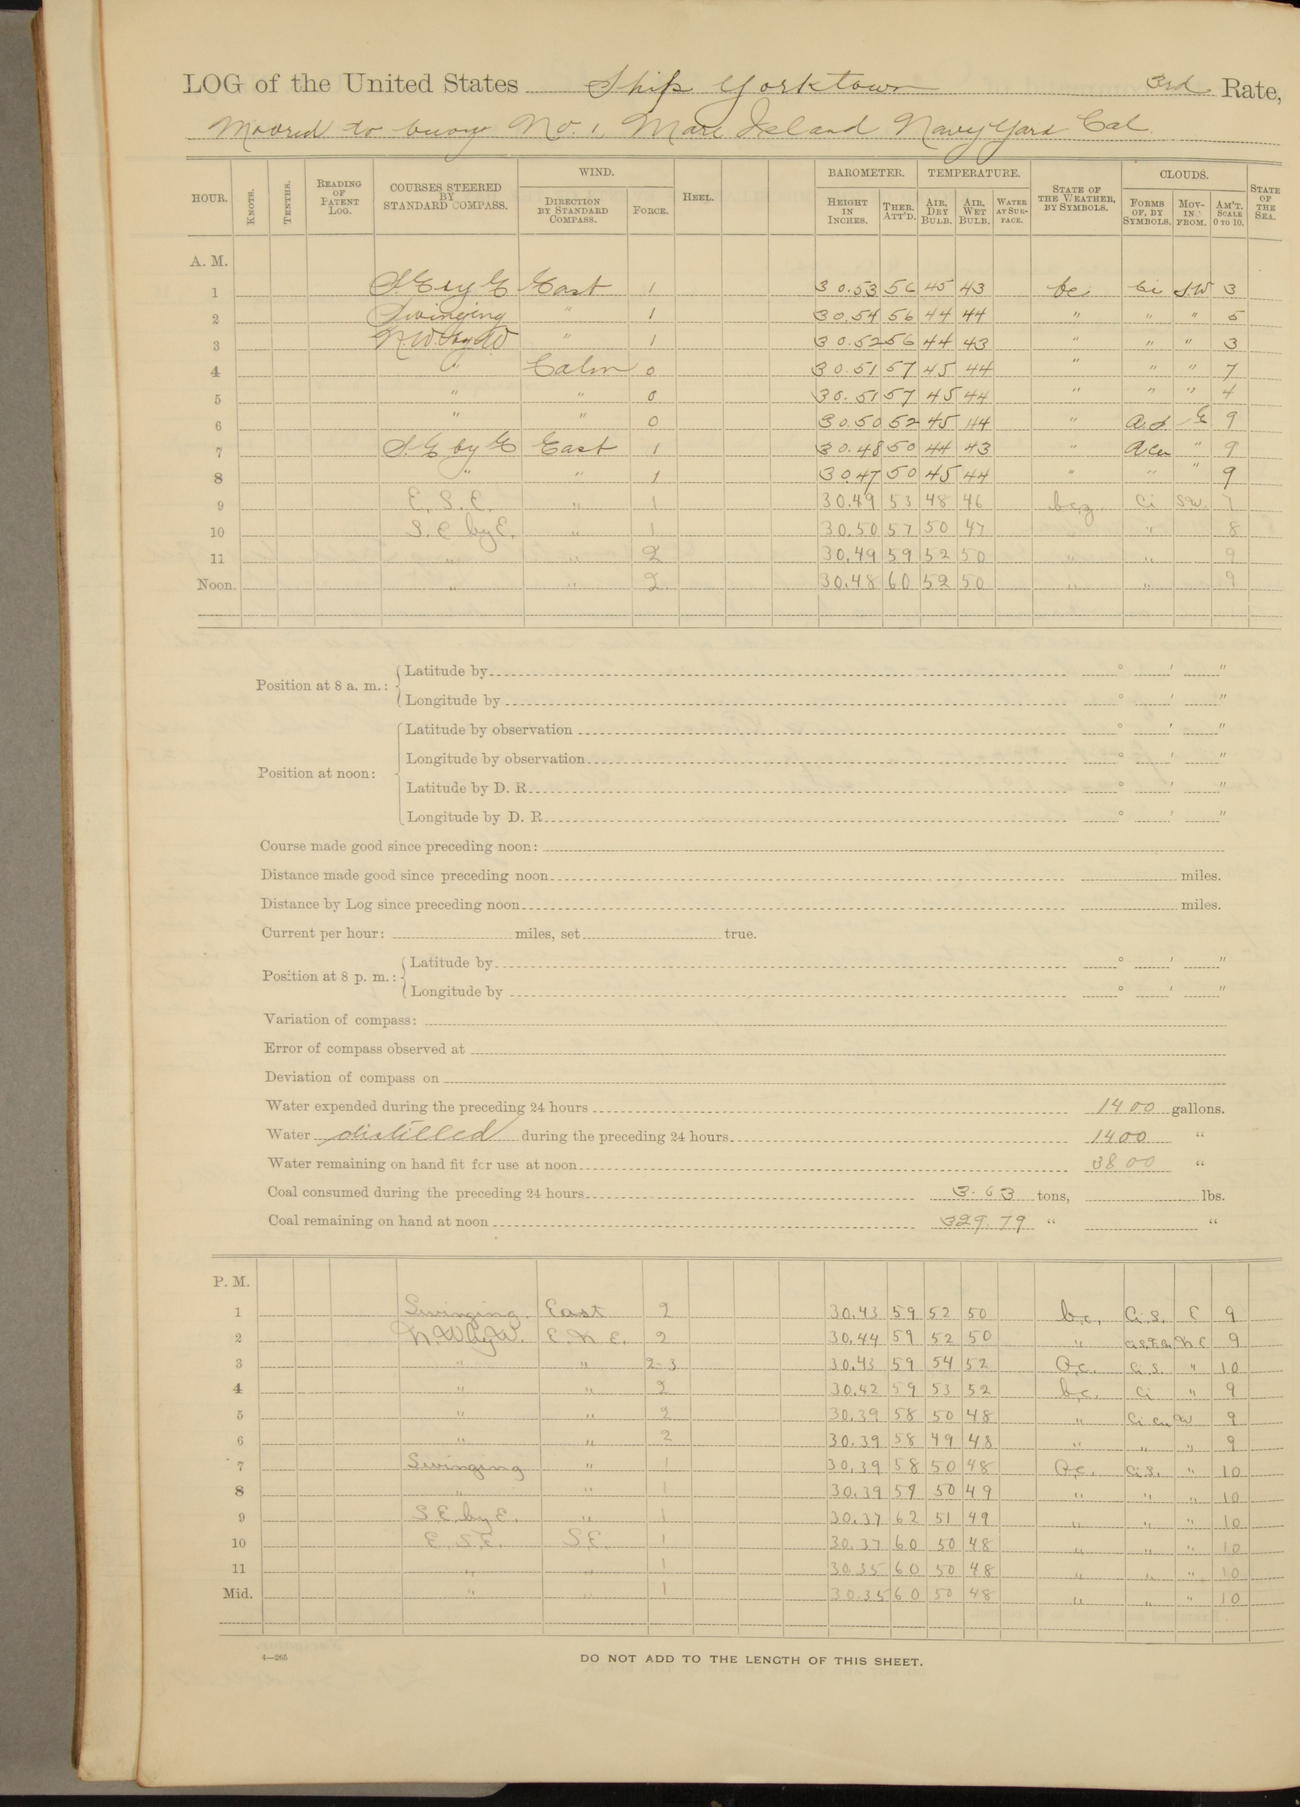 LOG of the United States Ship Yorktown 3rd Rate,
Moored to buoy No. 1, Mare Island Navy Yard Cal.
HOUR. KNOTS. TENTHS. READING OF PATENT LOG. COURSES STEERED BY STANDARD COMPASS. WIND. DIRECTION BY STANDARD COMPASS. FORCE. HEEL. BAROMETER. HEIGHT IN INCHES. THER. ATT'D. TEMPERATURE. AIR, DRY BULB. AIR, WET BULB. WATER AT SURFACE. STATE OF THE WEATHER, BY SYMBOLS. CLOUDS. FORMS OF, BY SYMBOLS. MOVING FROM. AM'T. SCALE 0 TO 10. STATE OF THE SEA.
A. M.
1 S.E by E East 1 30.53 56 45 43 bc Ci S.W 3
2 Swinging " 1 30.54 56 44 44 " " " 5
3 N.W. by W " 1 30.52 56 44 43 " " " 3
4 " Calm 0 30.51 57 45 44 " " " 7
5 " " 0 30.51 57 45 44 " " " 4
6 " " 0 30.50 52 45 44 " A.S. E 9
7 S.E by E East 1 30.48 50 44 43 " A Cu " 9
8 " " 1 30.47 50 45 44 " " " 9
9 E. S. E. " 1 30.49 53 48 46 bcz Ci SW. 7
10 S. E by E. " 1 30.50 57 50 47 " 8
11 " " 2 30.49 59 52 50 " " 9
Noon. " " 2 30.48 60 52 50 " " 9
Position at 8 a. m.: Latitude by ° ' "
Longitude by ° ' "
Position at noon: Latitude by observation ° ' "
Longitude by observation ° ' "
Latitude by D. R. ° ' "
Longitude by D. R. ° ' "
Course made good since preceding noon:
Distance made good since preceding noon miles.
Distance by Log since preceding noon miles.
Current per hour: miles, set true.
Position at 8 p. m.: Latitude by ° ' "
Longitude by ° ' "
Variation of compass:
Error of compass observed at
Deviation of compass on
Water expended during the preceding 24 hours 1400 gallons.
Water distilled during the preceding 24 hours 1400 "
Water remaining on hand fit for use at noon 3800 "
Coal consumed during the preceding 24 hours 3.63 tons, lbs.
Coal remaining on hand at noon 329.79 " "
P. M.
1 Swinging East 2 30.43 59 52 50 b.c. Ci S. E 9
2 N.W by W. E. N. E. 2 30.44 59 52 50 " N E 9
3 " " 2-3 30.43 59 54 52 O.c. Ci S. " 10
4 " " 2 30.42 59 53 52 b.c. Ci " 9
5 " " 2 30.39 58 50 48 " Ci Cu W 9
6 " " 2 30.39 58 49 48 " " " 9
7 Swinging " 1 30.39 58 50 48 O.c. Ci S. " 10
8 " " 1 30.39 59 50 49 " " " 10
9 S E. by E. " 1 30.37 62 51 49 " " " 10
10 E. S. E. S.E. 1 30.37 60 50 48 " " " 10
11 " " 1 30.35 60 50 48 " " " 10
Mid. " " 1 30.35 60 50 48 " " " 10
4—265 DO NOT ADD TO THE LENGTH OF THIS SHEET.